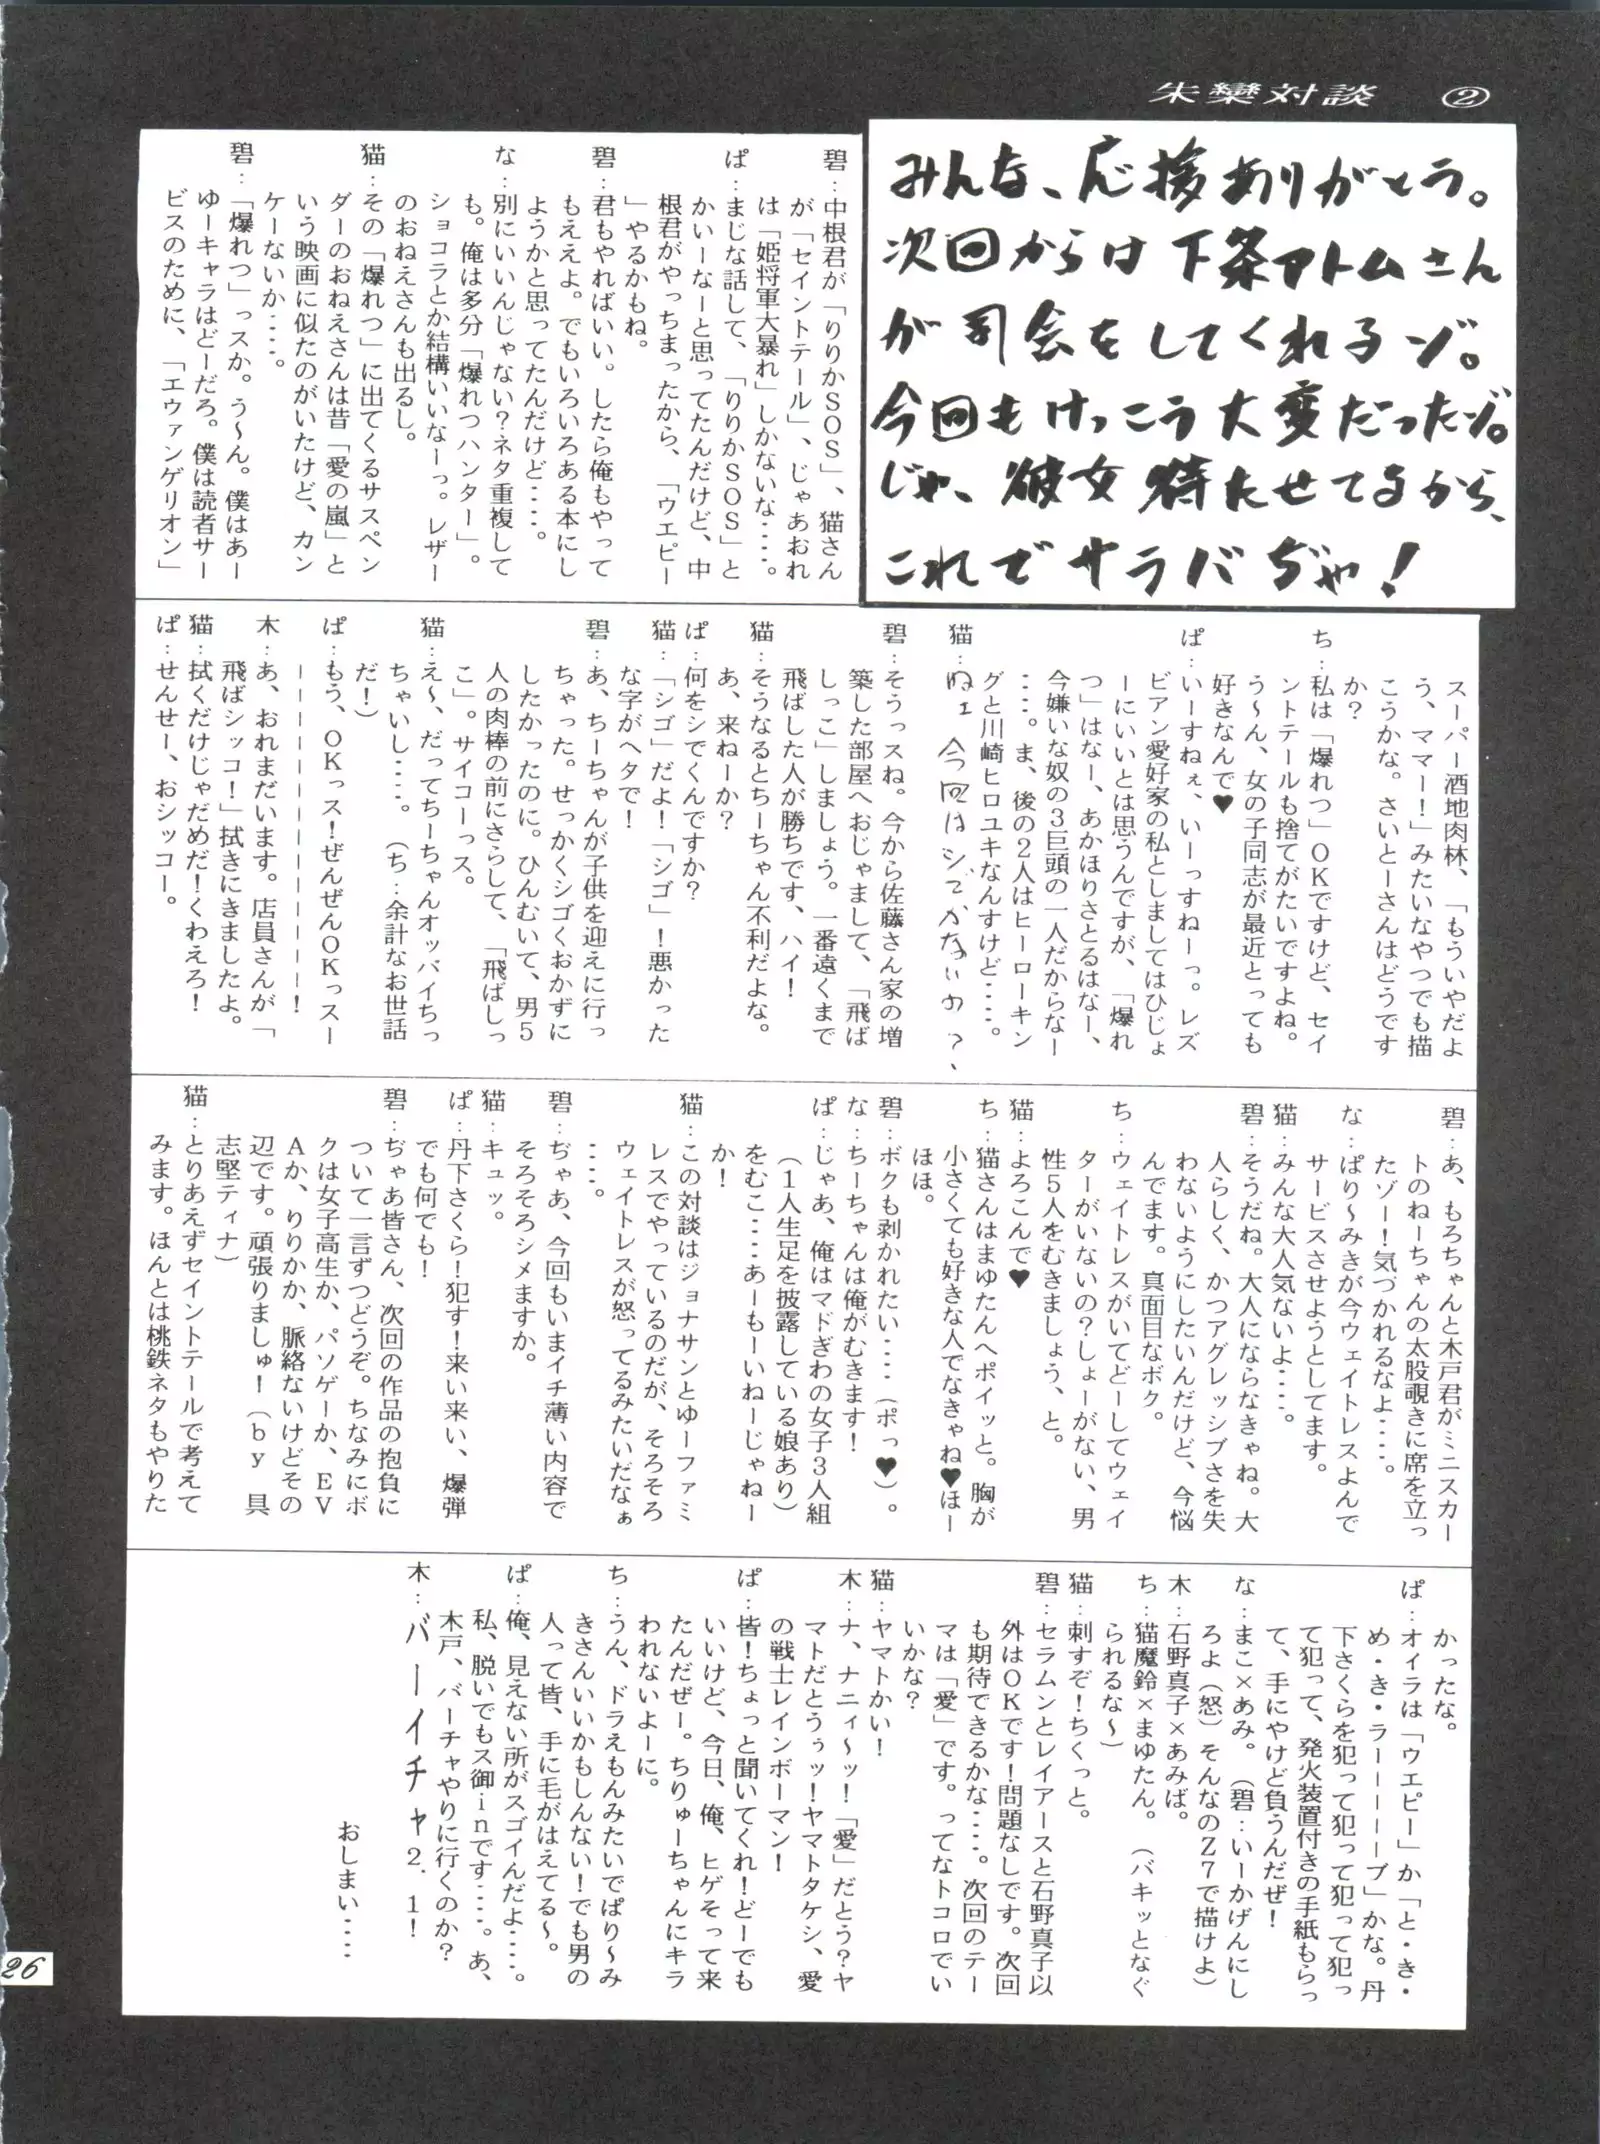 朱欒対談　②
みんな、応援ありがとう。
次回からは下条アトムさん
が司会をしてくれるゾ。
今回もけっこう大変だったゾ。
じゃ、彼女待たせてるから、
これでサラバぢゃ！
碧：中根君が「りりかSOS」、猫さん
が「セイントテール」、じゃあおれ
は「姫将軍大暴れ」しかないな‥‥。
ぱ：まじな話して、「りりかSOS」と
かいーなーと思ってたんだけど、中
根君がやっちまったから、「ウエピー
」やるかもね。
碧：君もやればいい。したら俺もやって
もええよ。でもいろいろある本にし
ようかと思ってたんだけど‥‥。
な：別にいいんじゃない？ネタ重複して
も。俺は多分「爆れつハンター」。
ショコラとか結構いいなーっ。レザー
のおねえさんも出るし。
猫：その「爆れつ」に出てくるサスペン
ダーのおねえさんは昔「愛の嵐」と
いう映画に似たのがいたけど、カン
ケーないか‥‥。
碧：「爆れつ」っスか。う～ん。僕はあー
ゆーキャラはどーだろ。僕は読者サー
ビスのために、「エヴァンゲリオン」
スーパー酒地肉林、「もういやだよ
う、ママー！」みたいなやつでも描
こうかな。さいとーさんはどうです
か？
ち：私は「爆れつ」OKですけど、セイ
ントテールも捨てがたいですよね。
う～ん、女の子同志が最近とっても
好きなんで♥
ぱ：いーすねぇ、いーっすねーっ。レズ
ビアン愛好家の私としましてはひじょ
ーにいいとは思うんですが、「爆れ
つ」はなー、あかほりさとるはなー、
今嫌いな奴の3巨頭の一人だからなー
‥‥。ま、後の2人はヒーローキン
グと川崎ヒロユキなんすけど‥‥。
猫：ねェ今回はシでかないの？、
碧：そうっスね。今から佐藤さん家の増
築した部屋へおじゃまして、「飛ば
しっこ」しましょう。一番遠くまで
飛ばした人が勝ちです、ハイ！
猫：そうなるとちーちゃん不利だよな。
あ、来ねーか？
ぱ：何をシでくんですか？
猫：「シゴ」だよ！「シゴ」！悪かった
な字がヘタで！
碧：あ、ちーちゃんが子供を迎えに行っ
ちゃった。せっかくシゴくおかずに
したかったのに。ひんむいて、男5
人の肉棒の前にさらして、「飛ばしっ
こ」。サイコーっス。
猫：え～、だってちーちゃんオッパイちっ
ちゃいし‥‥。（ち：余計なお世話
だ！）
ぱ：もう、OKっス！ぜんぜんOKっスー
ーーーーーーーーーーー！
木：あ、おれまだいます。店員さんが「
飛ばシッコ！」拭きにきましたよ。
猫：拭くだけじゃだめだ！くわえろ！
ぱ：せんせー、おシッコー。
碧：あ、もろちゃんと木戸君がミニスカー
トのねーちゃんの太股覗きに席を立っ
たゾー！気づかれるなよ‥‥。
な：ぱり～みきが今ウェイトレスよんで
サービスさせようとしてます。
猫：みんな大人気ないよ‥‥。
碧：そうだね。大人にならなきゃね。大
人らしく、かつアグレッシブさを失
わないようにしたいんだけど、今悩
んでます。真面目なボク。
ち：ウェイトレスがいてどーしてウェイ
ターがいないの？しょーがない、男
性5人をむきましょう、と。
猫：よろこんで♥
ち：猫さんはまゆたんへポイッと。胸が
小さくても好きな人でなきゃね♥ほー
ほほ。
碧：ボクも剥かれたい‥‥（ポっ♥）。
な：ちーちゃんは俺がむきます！
ぱ：じゃあ、俺はマドぎわの女子3人組
（1人生足を披露している娘あり）
をむこ‥‥あーもーいねーじゃねー
か！
猫：この対談はジョナサンとゆーファミ
レスでやっているのだが、そろそろ
ウェイトレスが怒ってるみたいだなぁ
‥‥。
碧：ぢゃあ、今回もいまイチ薄い内容で
そろそろシメますか。
猫：キュッ。
ぱ：丹下さくら！犯す！来い来い、爆弾
でも何でも！
碧：ぢゃあ皆さん、次回の作品の抱負に
ついて一言ずつどうぞ。ちなみにボ
クは女子高生か、パソゲーか、EV
Aか、りりかか、脈絡ないけどその
辺です。頑張りましゅ！（by　具
志堅ティナ）
猫：とりあえずセイントテールで考えて
みます。ほんとは桃鉄ネタもやりた
かったな。
ぱ：オイラは「ウエピー」か「と・き・
め・き・ラーーーーブ」かな。丹
下さくらを犯って犯って犯って犯っ
て犯って、発火装置付きの手紙もらっ
て、手にやけど負うんだぜ！
な：まこ×あみ。（碧：いーかげんにし
ろよ（怒）そんなのZ7で描けよ）
木：石野真子×あみば。
ち：猫魔鈴×まゆたん。（バキッとなぐ
られるな～）
猫：刺すぞ！ちくっと。
碧：セラムンとレイアースと石野真子以
外はOKです！問題なしです。次回
も期待できるかな‥‥。次回のテー
マは「愛」です。ってなトコロでい
いかな？
猫：ヤマトかい！
木：ナ、ナニィ～ッ！「愛」だとう？ヤ
マトだとうぅッ！ヤマトタケシ、愛
の戦士レインボーマン！
ぱ：皆！ちょっと聞いてくれ！どーでも
いいけど、今日、俺、ヒゲそって来
たんだぜー。ちりゅーちゃんにキラ
われないよーに。
ち：うん、ドラえもんみたいでぱり～み
きさんいいかもしんない！でも男の
人って皆、手に毛がはえてる～。
ぱ：俺、見えない所がスゴイんだよ‥‥。
私、脱いでもス御inです‥‥。あ、
木戸、バーチャやりに行くのか？
木：バーイチャ2．1！
おしまい‥‥
26